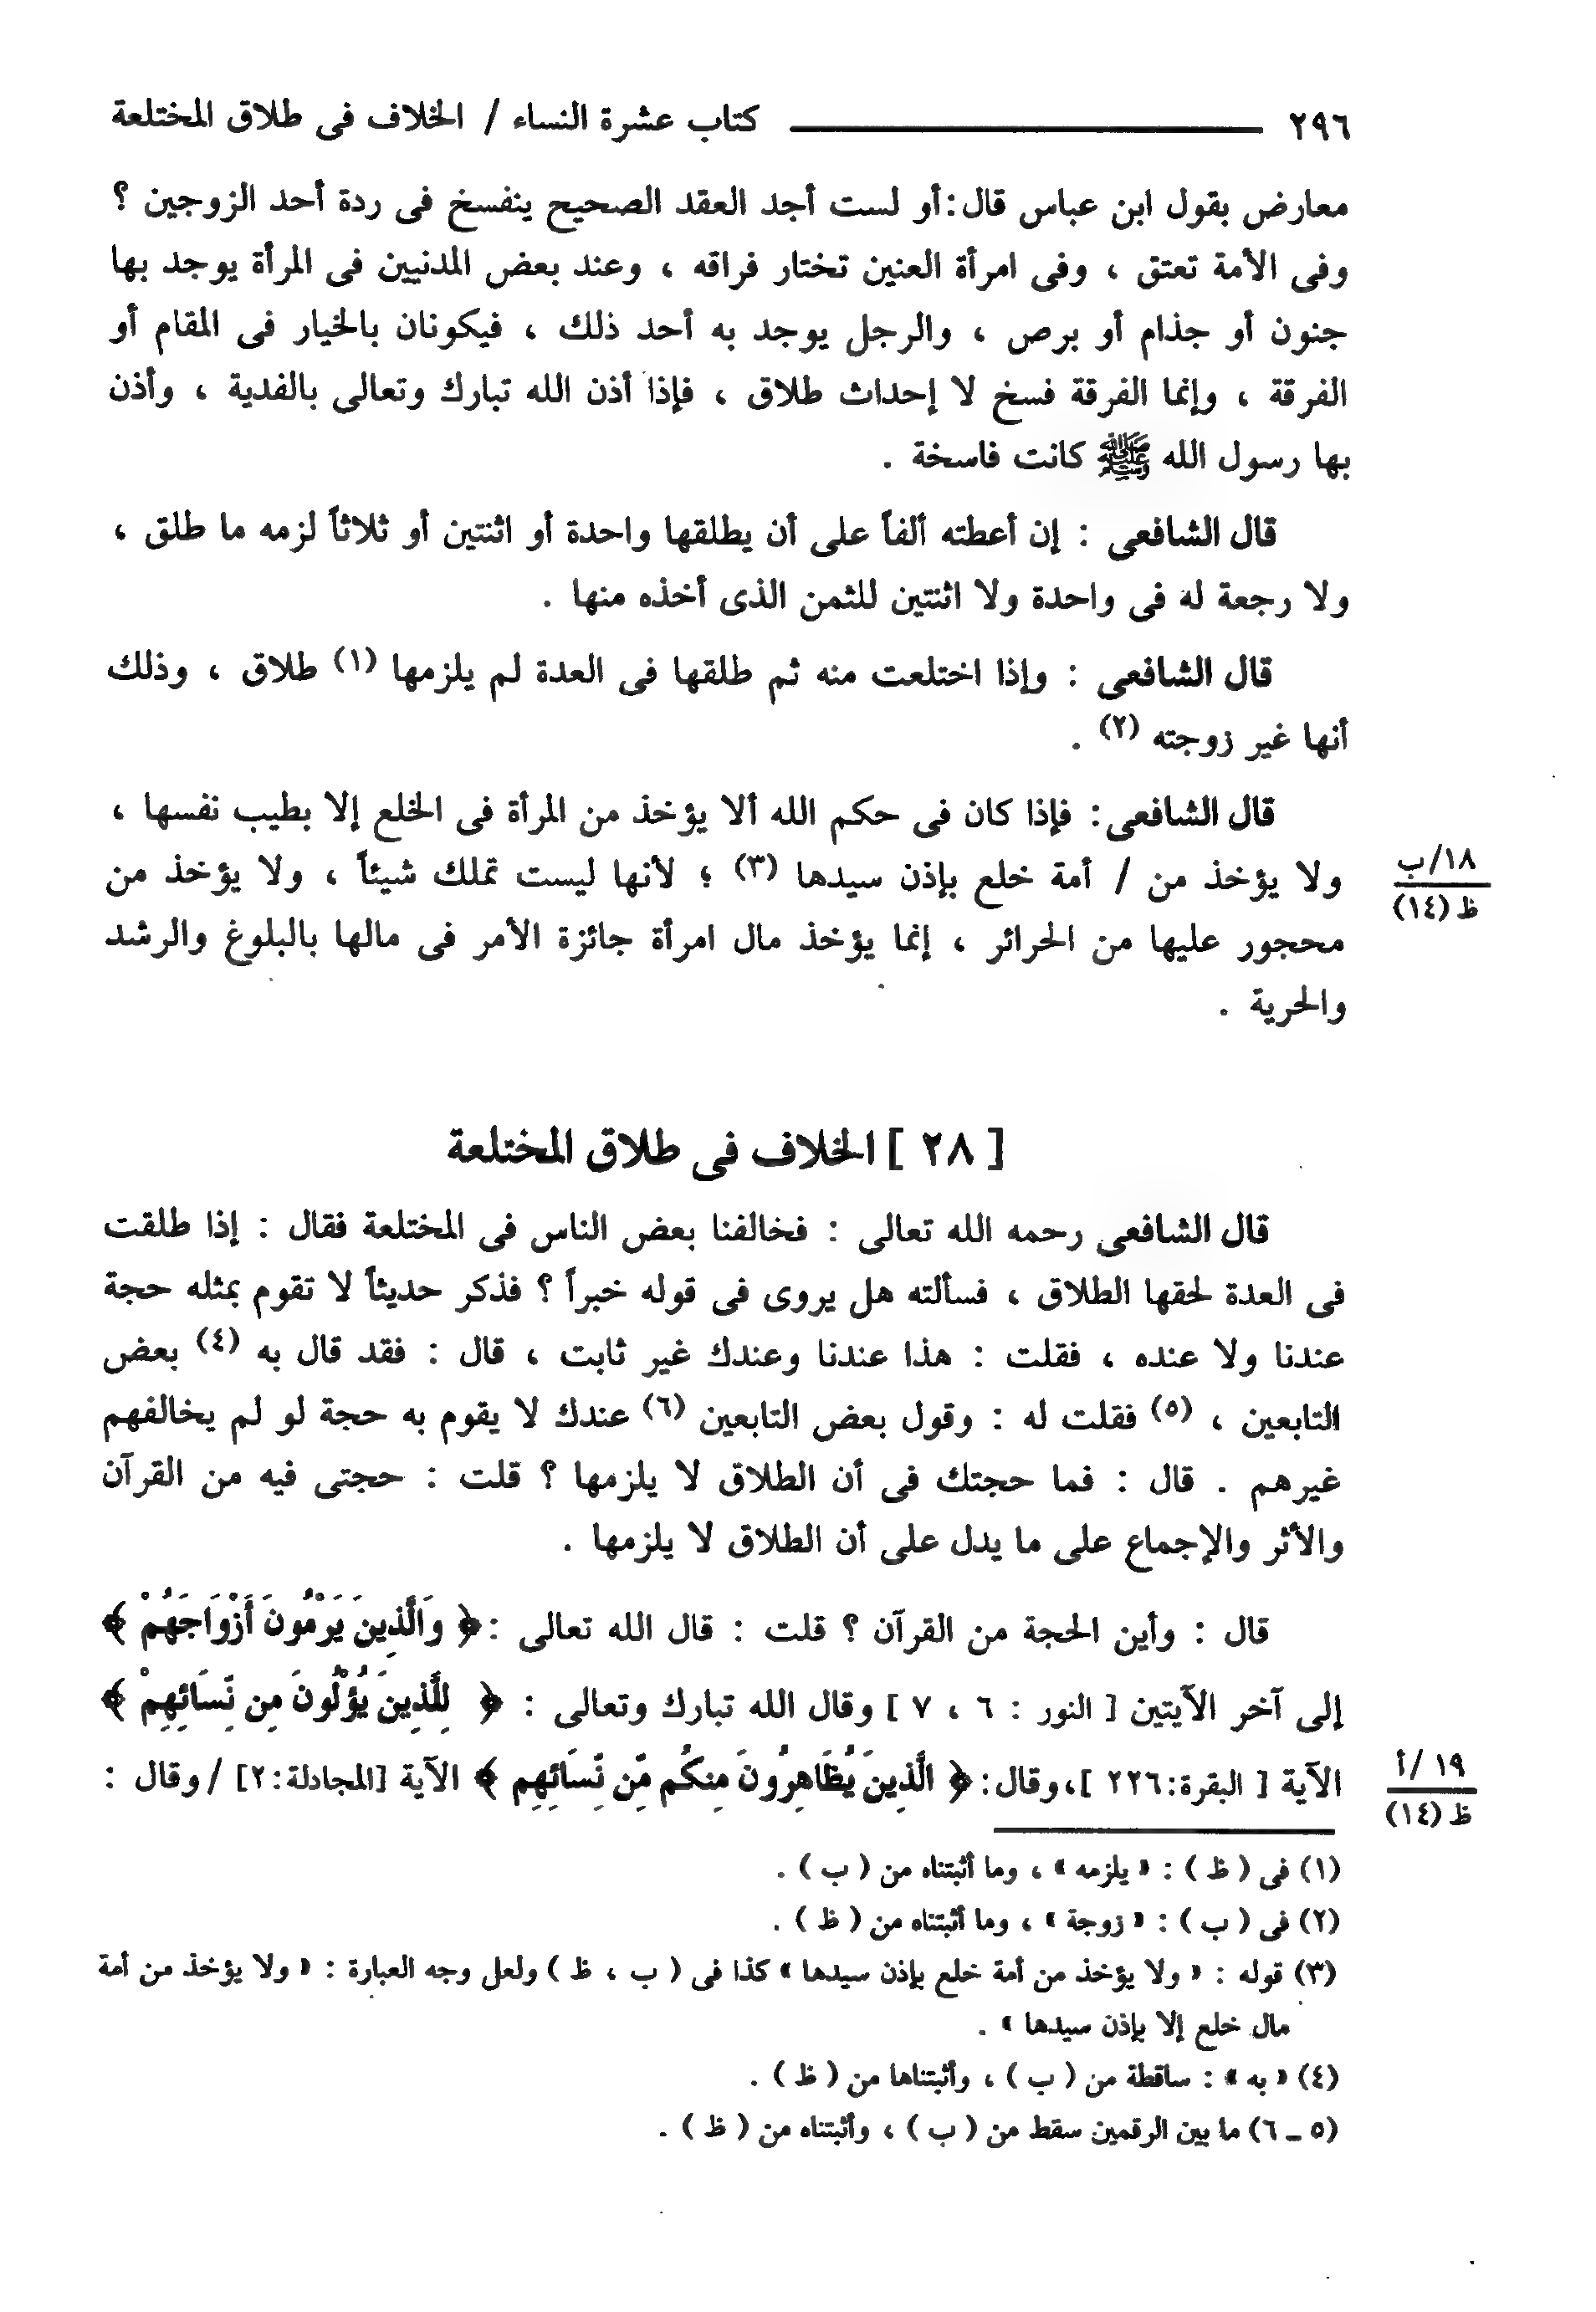 ٢٩٦ ــــــــــ كتاب عشرة النساء / الخلاف فى طلاق المختلعة
معارض بقول ابن عباس قال:أو لست أجد العقد الصحيح ينفسخ فى ردة أحد الزوجين ؟
وفى الأمة تعتق ، وفى امرأة العنين تختار فراقه ، وعند بعض المدنيين فى المرأة يوجد بها
جنون أو جذام أو برص ، والرجل يوجد به أحد ذلك ، فيكونان بالخيار فى المقام أو
الفرقة ، وإنما الفرقة فسخ لا إحداث طلاق ، فإذا أذن الله تبارك وتعالى بالفدية ، وأذن
بها رسول الله ﷺ كانت فاسخة .
قال الشافعى : إن أعطته ألفاً على أن يطلقها واحدة أو اثنتين أو ثلاثاً لزمه ما طلق ،
ولا رجعة له فى واحدة ولا اثنتين للثمن الذى أخذه منها .
قال الشافعى : وإذا اختلعت منه ثم طلقها فى العدة لم يلزمها (١) طلاق ، وذلك
أنها غير زوجته (٢) .
قال الشافعى: فإذا كان فى حكم الله ألا يؤخذ من المرأة فى الخلع إلا بطيب نفسها ،
ولا يؤخذ من / أمة خلع بإذن سيدها (٣) ؛ لأنها ليست تملك شيئاً ، ولا يؤخذ من
١٨/ب
ظ (١٤)
محجور عليها من الحرائر ، إنما يؤخذ مال امرأة جائزة الأمر فى مالها بالبلوغ والرشد
والحرية .
[ ٢٨ ] الخلاف فى طلاق المختلعة
قال الشافعى رحمه الله تعالى : فخالفنا بعض الناس فى المختلعة فقال : إذا طلقت
فى العدة لحقها الطلاق ، فسألته هل يروى فى قوله خبراً ؟ فذكر حديثاً لا تقوم بمثله حجة
عندنا ولا عنده ، فقلت : هذا عندنا وعندك غير ثابت ، قال : فقد قال به (٤) بعض
التابعين ، (٥) فقلت له : وقول بعض التابعين (٦) عندك لا يقوم به حجة لو لم يخالفهم
غيرهم . قال : فما حجتك فى أن الطلاق لا يلزمها ؟ قلت : حجتى فيه من القرآن
والأثر والإجماع على ما يدل على أن الطلاق لا يلزمها .
قال : وأين الحجة من القرآن ؟ قلت : قال الله تعالى :﴿ وَالَّذِينَ يَرْمُونَ أَزْوَاجَهُمْ ﴾
إلى آخر الآيتين [ النور : ٦ ، ٧ ] وقال الله تبارك وتعالى : ﴿ لِلَّذِينَ يُؤْلُونَ مِن نِّسَائِهِمْ ﴾
الآية [ البقرة:٢٢٦ ]،وقال:﴿ الَّذِينَ يُظَاهِرُونَ مِنكُم مِّن نِّسَائِهِم ﴾ الآية [المجادلة:٢] /وقال :
١٩ /أ
ظ (١٤)
(١) فى ( ظ ) : « يلزمه » ، وما أثبتناه من ( ب ) .
(٢) فى ( ب ) : « زوجة » ، وما أثبتناه من ( ظ ) .
(٣) قوله : « ولا يؤخذ من أمة خلع بإذن سيدها » كذا فى ( ب ، ظ ) ولعل وجه العبارة : « ولا يؤخذ من أمة
مال خلع إلا بإذن سيدها » .
(٤) « به » : ساقطة من ( ب ) ، وأثبتناها من ( ظ ) .
(٥ ـ ٦) ما بين الرقمين سقط من ( ب ) ، وأثبتناه من ( ظ ) .